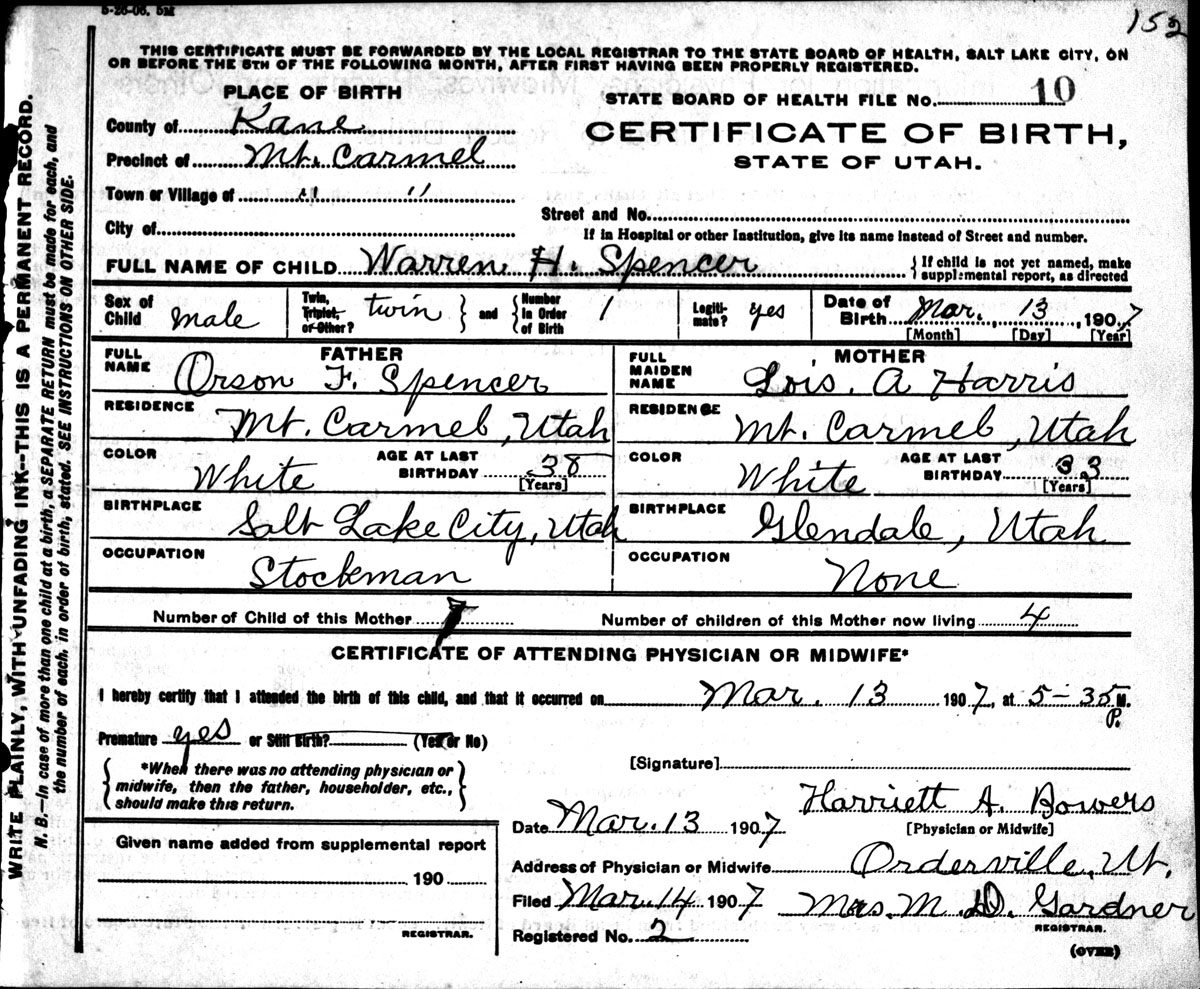 5-26-06. 5M
152
THIS CERTIFICATE MUST BE FORWARDED BY THE LOCAL REGISTRAR TO THE STATE BOARD OF HEALTH, SALT LAKE CITY, ON
OR BEFORE THE 5TH OF THE FOLLOWING MONTH, AFTER FIRST HAVING BEEN PROPERLY REGISTERED.
PLACE OF BIRTH
STATE BOARD OF HEALTH FILE NO. 10
County of Kane
CERTIFICATE OF BIRTH,
Precinct of Mt. Carmel
STATE OF UTAH.
Town or Village of " "
Street and No.
City of
If in Hospital or other Institution, give its name instead of Street and number.
FULL NAME OF CHILD Warren H. Spencer { If child is not yet named, make supplemental report, as directed
Sex of Child male Twin, Triplet, or Other? twin } and { Number in Order of Birth 1 Legitimate? yes Date of Birth Mar. 13, 1907
[Month] [Day] [Year]
FATHER MOTHER
FULL NAME Orson F. Spencer FULL MAIDEN NAME Lois. A Harris
RESIDENCE Mt. Carmel, Utah RESIDENCE Mt. Carmel, Utah
COLOR White AGE AT LAST BIRTHDAY 38 [Years] COLOR White AGE AT LAST BIRTHDAY 33 [Years]
BIRTHPLACE Salt Lake City, Utah BIRTHPLACE Glendale, Utah
OCCUPATION Stockman OCCUPATION None
Number of Child of this Mother Number of children of this Mother now living 4
CERTIFICATE OF ATTENDING PHYSICIAN OR MIDWIFE*
I hereby certify that I attended the birth of this child, and that it occurred on Mar. 13 1907, at 5-35 P. M.
Premature yes or Still Birth? (Yes or No)
[Signature]
*When there was no attending physician or
midwife, then the father, householder, etc.,
should make this return.
Harriett A. Bowers
Date Mar. 13 1907 [Physician or Midwife]
Given name added from supplemental report
190
REGISTRAR.
Address of Physician or Midwife Orderville, Ut.
Filed Mar. 14 1907 Mrs. M. D. Gardner
REGISTRAR.
Registered No. 2
(OVER)
WRITE PLAINLY, WITH UNFADING INK--THIS IS A PERMANENT RECORD.
N. B.—In case of more than one child at a birth, a SEPARATE RETURN must be made for each, and
the number of each, in order of birth, stated. SEE INSTRUCTIONS ON OTHER SIDE.